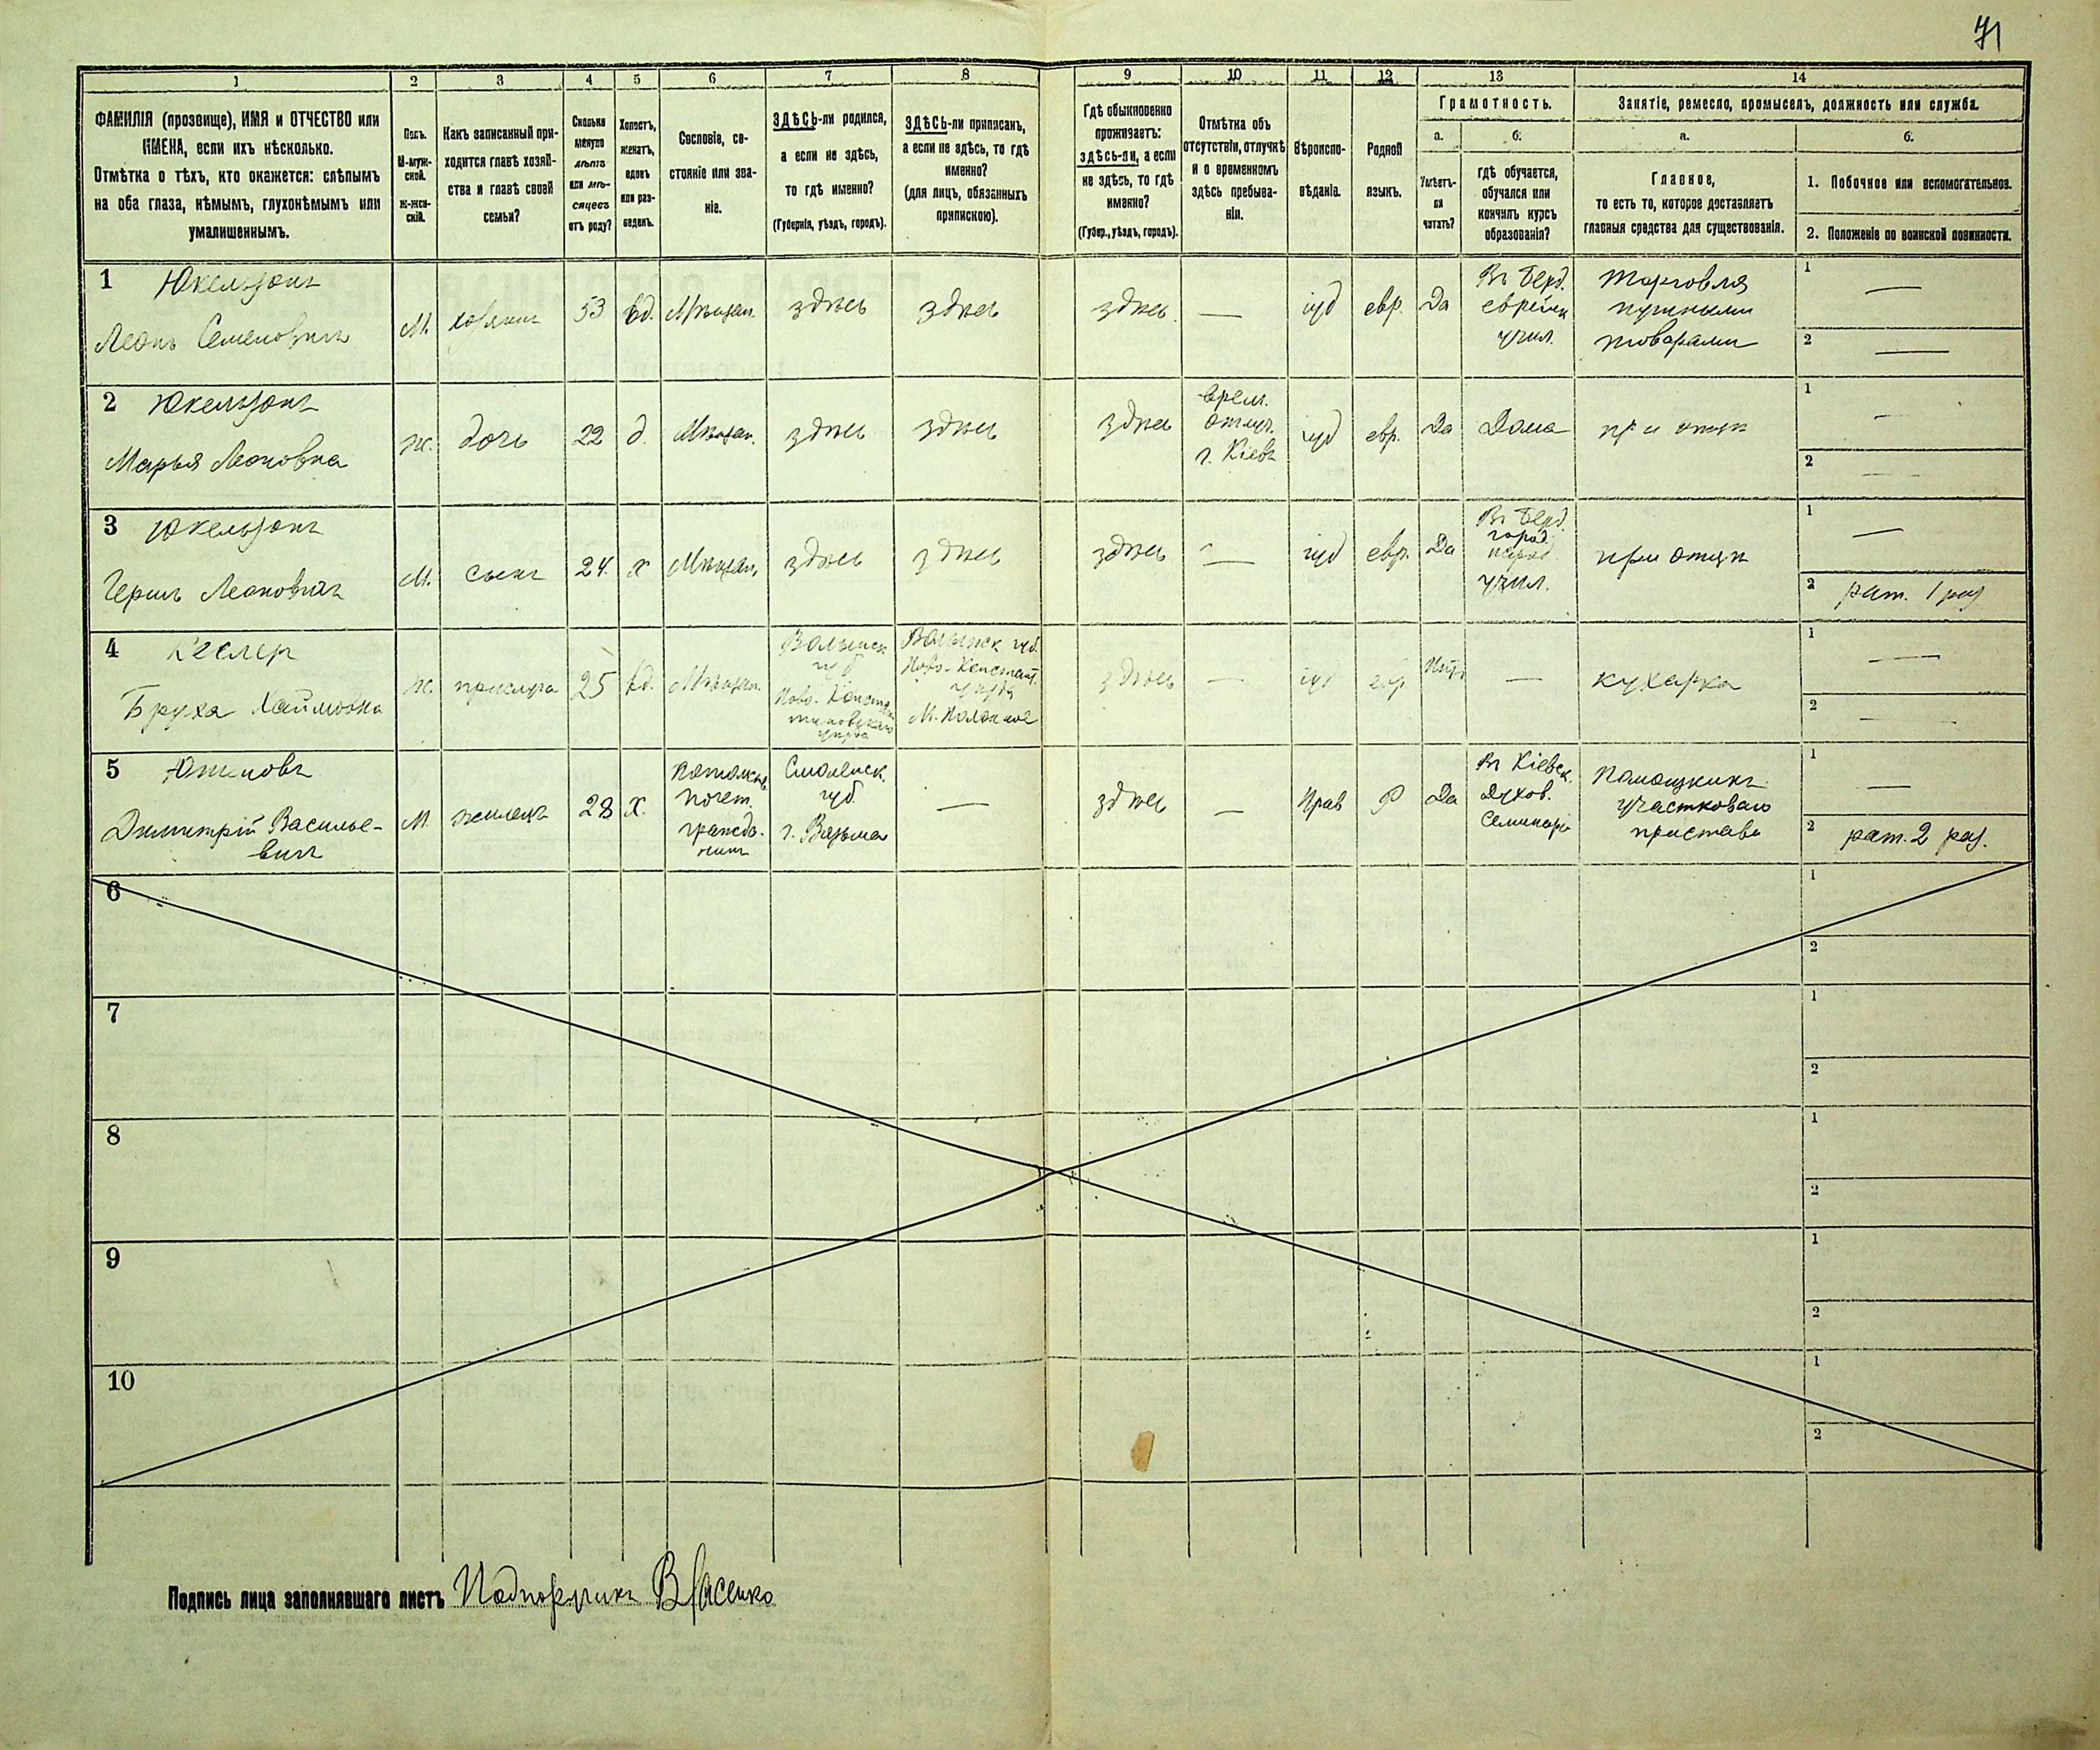 71
1 2 3 4 5 6 7 8 9 10 11 12 13 14
ФАМИЛІЯ (прозвище), ИМЯ и ОТЧЕСТВО или
ИМЕНА, если ихъ нѣсколько.
Отмѣтка о тѣхъ, кто окажется: слѣпымъ
на оба глаза, нѣмымъ, глухонѣмымъ или
умалишеннымъ.
Полъ.
М-муж-
ской.
Ж-жен-
скій.
Какъ записанный при-
ходится главѣ хозяй-
ства и главѣ своей
семьи?
Сколько
минуло
лѣтъ
или мѣ-
сяцевъ
отъ роду?
Холостъ,
женатъ,
вдовъ
или раз-
веденъ.
Сословіе, со-
стояніе или зва-
ніе.
ЗДѢСЬ-ли родился,
а если не здѣсь,
то гдѣ именно?
(Губернія, уѣздъ, городъ).
ЗДѢСЬ-ли приписанъ,
а если не здѣсь, то гдѣ
именно?
(для лицъ, обязанныхъ
припискою).
Гдѣ обыкновенно
проживаетъ:
здѣсь-ли, а если
не здѣсь, то гдѣ
именно?
(Губер., уѣздъ, городъ).
Отмѣтка объ
отсутствіи, отлучкѣ
и о временномъ
здѣсь пребыва-
ніи.
Вѣроиспо-
вѣданіе.
Родной
языкъ.
Грамотность.
а.
Умѣетъ-
ли
читать?
б.
гдѣ обучается,
обучался или
кончилъ курсъ
образованія?
Занятіе, ремесло, промыселъ, должность или служба.
а.
Главное,
то есть то, которое доставляетъ
главныя средства для существованія.
б.
1. Побочное или вспомогательное.
2. Положеніе по воинской повинности.
1 Юкельзонъ
Леонъ Семеновичъ
М.
хозяинъ
53
вд.
Мѣщан.
здѣсь
здѣсь
здѣсь
—
іуд
евр.
Да
Въ Берд.
еврейск
учил.
Торговля
пушными
товарами
1 —
2 —
2 Юкельзонъ
Марья Леоновна
Ж.
дочь
22
д.
Мѣщан.
здѣсь
здѣсь
здѣсь
врем.
отлуч.
г. Кіевъ
іуд
евр.
Да
Дома
при отцѣ
1 —
2 —
3 Юкельзонъ
Гершъ Леоновичъ
М.
сынъ
24
х
Мѣщан.
здѣсь
здѣсь
здѣсь
—
іуд
евр.
Да
Въ Берд.
город.
учил.
при отцѣ
1 —
2 рат. 1 раз
4 Кеслер
Бруха Хаймовна
Ж.
прислуга
25
вд.
Мѣщан.
Волынск
губ
Ново-Констан
тиновскаго
уѣзда
Волынск губ.
Ново-Констант.
уѣзда
М. Полонное
здѣсь
—
іуд
евр
Нѣтъ
—
кухарка
1 —
2 —
5
Димитрій Василье-
вичъ
М.
жилецъ
28
х.
Потомств.
почет.
гражда-
нинъ
Смоленск.
губ.
г. Вязьма
—
здѣсь
—
Прав
Р
Да
Въ Кіевск.
Духов.
Семинарі
Помощникъ
участковаго
пристава
1 —
2 рат. 2 раз.
6
1
2
7
1
2
8
1
2
9
1
2
10
1
2
Подпись лица заполнявшаго листъ Подпоручикъ Власенко